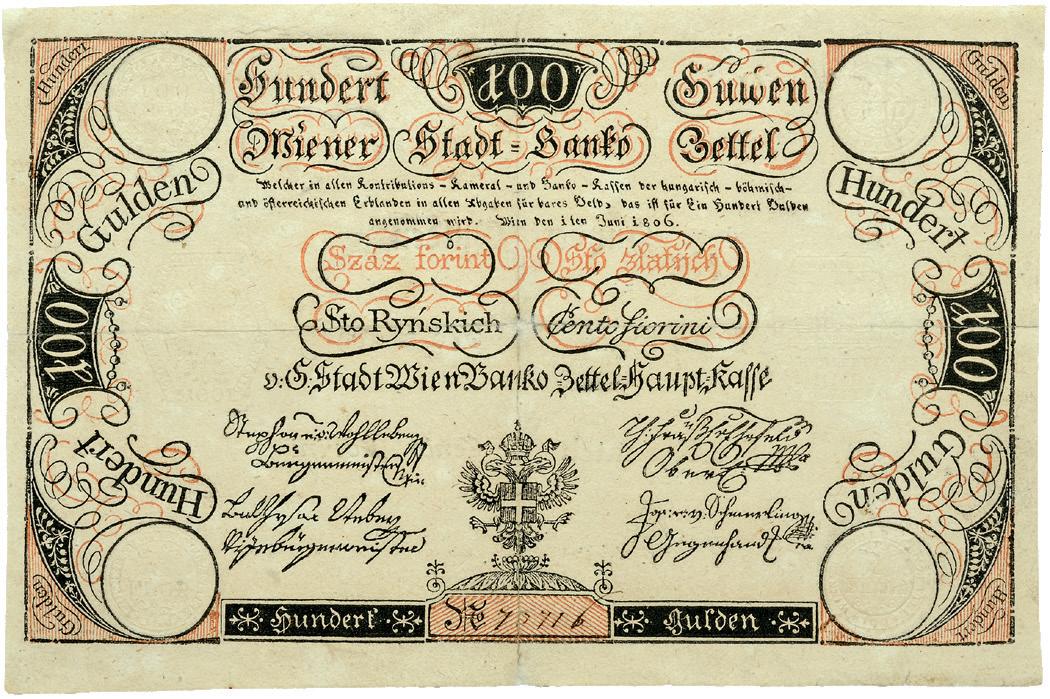 Hundert Gulden
Hundert 100 Gulden
Wiener Stadt=Banko Zettel
Welcher in allen Kontributions - Kameral - und Banko - Kassen der hungarisch - böhmisch-
und österreichischen Erblanden in allen Abgaben für bares Geld, das ist für Ein Hundert Gulden
angenommen wird. Wien den 1ten Juni 1806.
Gulden Hundert
Száz forint Sto zlatých
100 100
Sto Ryńskich Cento fiorini
v. G. Stadt Wien Banko Zettel=Haupt=Kasse
Stephan v. Wohlleben
Burgermeister
Hundert Gulden
Vizebürgermeister
Gegenhand
Hundert № 73716 Gulden
Gulden Hundert